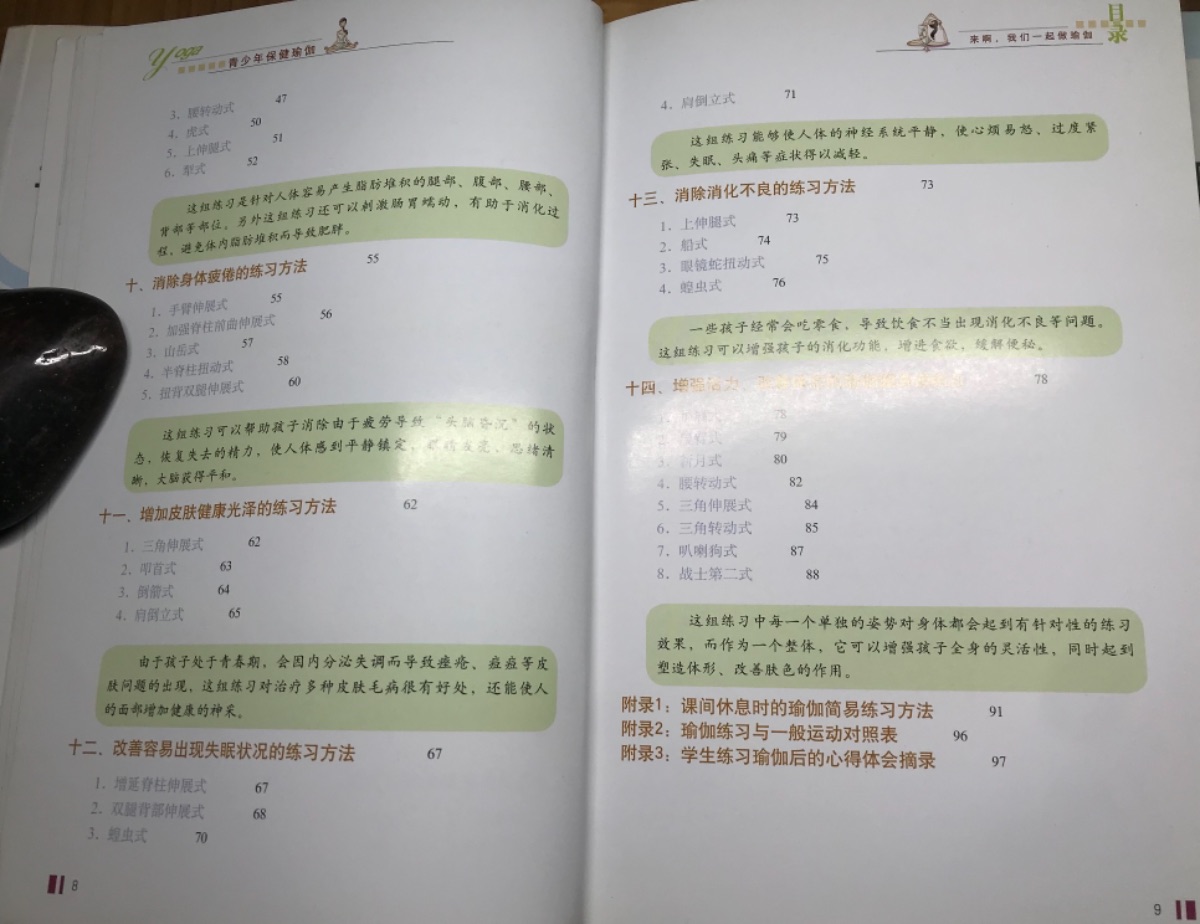 Yoga
青少年保健瑜伽
3. 腰转动式 47
4. 虎式 50
5. 上伸腿式 51
6. 犁式 52
这组练习是针对人体容易产生脂肪堆积的腿部、腹部、腰部、
背部等部位，另外这组练习还可以刺激肠胃蠕动，有助于消化过
程，避免体内脂肪堆积而导致肥胖。
十、消除身体疲倦的练习方法 55
1. 手臂伸展式 55
2. 加强脊柱前曲伸展式 56
3. 山岳式 57
4. 半脊柱扭动式 58
5. 扭背双腿伸展式 60
这组练习可以帮助孩子消除由于疲劳导致“头脑昏沉”的状
态，恢复失去的精力，使人体感到平静镇定，眼睛发亮、思绪清
晰，大脑获得平和。
十一、增加皮肤健康光泽的练习方法 62
1. 三角伸展式 62
2. 叩首式 63
3. 倒箭式 64
4. 肩倒立式 65
由于孩子处于青春期，会因内分泌失调而导致痤疮、痘痘等皮
肤问题的出现，这组练习对治疗多种皮肤毛病很有好处，还能使人
的面部增加健康的神采。
十二、改善容易出现失眠状况的练习方法 67
1. 增延脊柱伸展式 67
2. 双腿背部伸展式 68
3. 蝗虫式 70
8
来啊，我们一起做瑜伽
目录
4. 肩倒立式 71
这组练习能够使人体的神经系统平静，使心烦易怒、过度紧
张、失眠、头痛等症状得以减轻。
十三、消除消化不良的练习方法 73
1. 上伸腿式 73
2. 船式 74
3. 眼镜蛇扭动式 75
4. 蝗虫式 76
一些孩子经常会吃零食，导致饮食不当出现消化不良等问题。
这组练习可以增强孩子的消化功能，增进食欲，缓解便秘。
十四、增强活力、 78
78
2. 式 79
3. 新月式 80
4. 腰转动式 82
5. 三角伸展式 84
6. 三角转动式 85
7. 叭喇狗式 87
8. 战士第二式 88
这组练习中每一个单独的姿势对身体都会起到有针对性的练习
效果，而作为一个整体，它可以增强孩子全身的灵活性，同时起到
塑造体形、改善肤色的作用。
附录1：课间休息时的瑜伽简易练习方法 91
附录2：瑜伽练习与一般运动对照表 96
附录3：学生练习瑜伽后的心得体会摘录 97
9